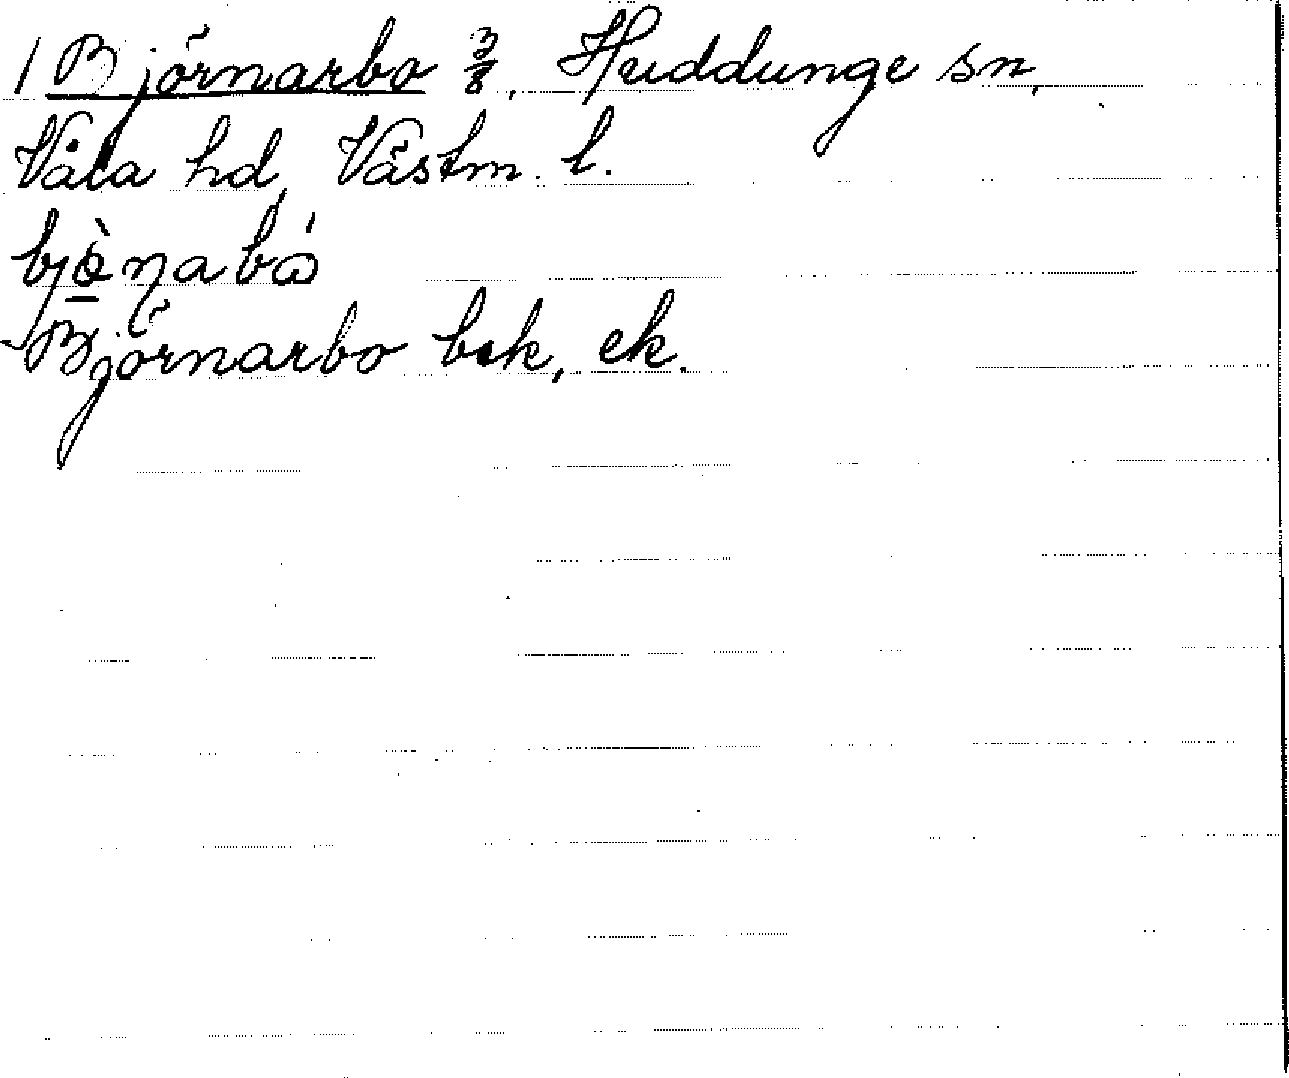 1 Björnarbo 3/8, Huddunge sn,
Våla hd, Västm. l.
Björnarbo bek, ek.